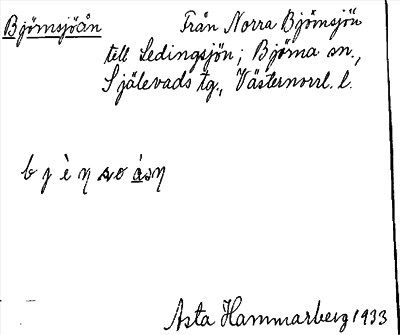 Björnsjöån Från Norra Björnsjön
till Ledingsjön; Björna sn.,
Själevads tg., Västernorrl. l.
Asta Hammarberg 1933